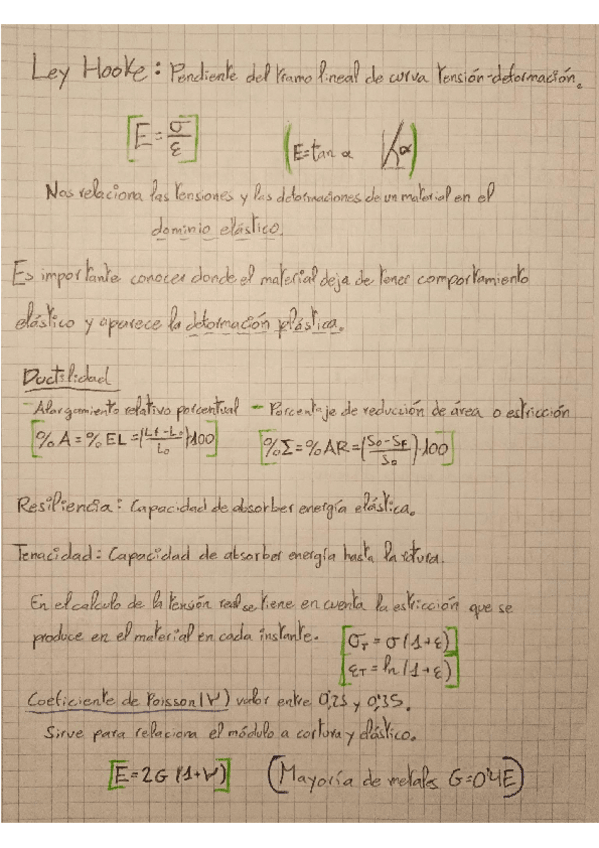 Ley Hooke: Pendiente del tramo lineal de curva tensión-deformación.
[E = σ/ε] (E = tan α α)
Nos relaciona las tensiones y las deformaciones de un material en el
dominio elástico.
Es importante conocer donde el material deja de tener comportamiento
elástico y aparece la deformación plástica.
Ductilidad
- Alargamiento relativo porcentual - Porcentaje de reducción de área o estricción
[% A = % EL = (Lf - L₀ / L₀)·100] [% Σ = % AR = (S₀ - SF / S₀)·100]
Resiliencia: Capacidad de absorber energía elástica.
Tenacidad: Capacidad de absorber energía hasta la rotura.
En el calculo de la tensión real se tiene en cuenta la estricción que se
produce en el material en cada instante. [σT = σ (1+ε)]
[εT = ln (1+ε)]
Coeficiente de Poisson (ν) valor entre 0,25 y 0,35.
Sirve para relaciona el módulo a cortura y elástico.
[E = 2G (1+ν)] (Mayoría de metales G=0'4E)